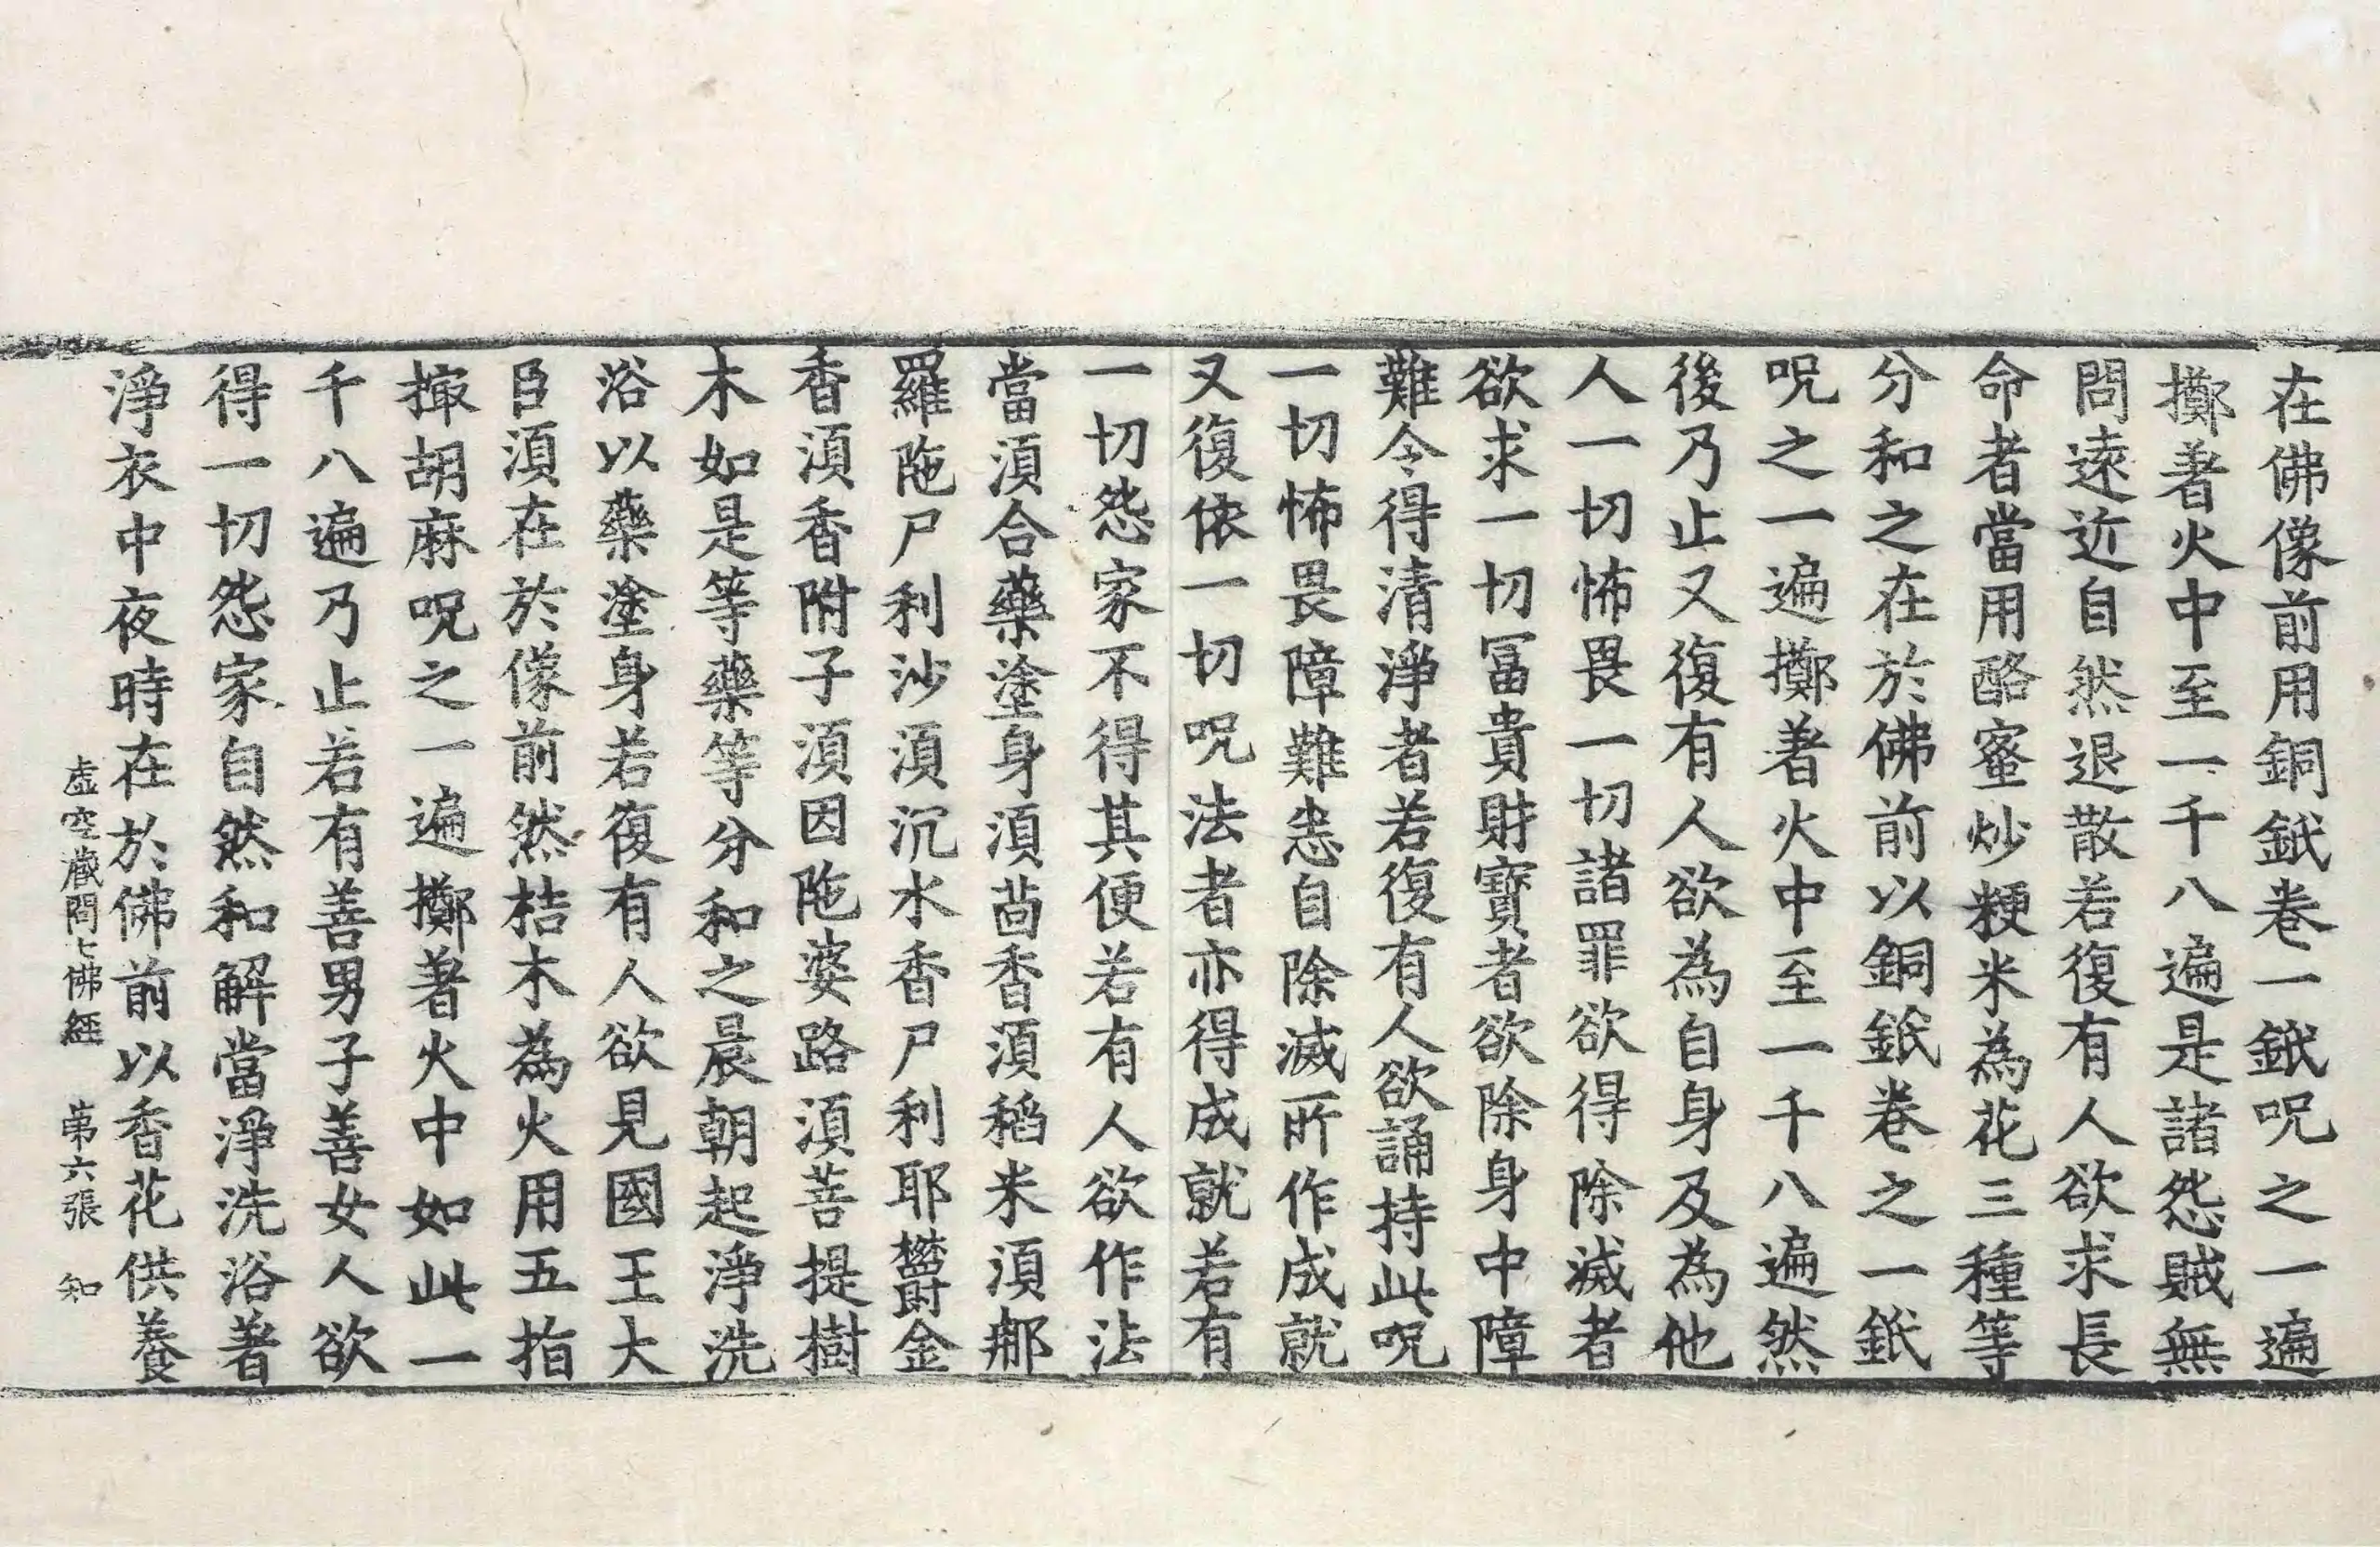 在佛像前用銅鈱卷一鈱呪之一遍
擲著火中至一千八遍是諸怨賊無
問遠近自然退散若復有人欲求長
命者當用酪蜜炒粳米為花三種等
分和之在於佛前以銅鈱卷之一鈱
呪之一遍擲著火中至一千八遍然
後乃止又復有人欲為自身及為他
人一切怖畏一切諸罪欲得除滅者
欲求一切冨貴財寶者欲除身中障
難令得清淨者若復有人欲誦持此呪
一切怖畏障難恚自除滅所作成就
又復依一切呪法者亦得成就若有
一切怨家不得其便若有人欲作法
當湏合藥塗身湏茴香湏稻米湏那
羅陁尸利沙湏沉水香尸利耶欝金
香湏香附子湏因陁婆路湏菩提樹
木如是等藥等分和之晨朝起淨洗
浴以藥塗身若復有人欲見國王大
臣湏在於像前然桔木為火用五指
撮胡麻呪之一遍擲著火中如此一
千八遍乃止若有善男子善女人欲
得一切怨家自然和解當淨洗浴著
淨衣中夜時在於佛前以香花供養
虛空藏問七佛經 第六張 知